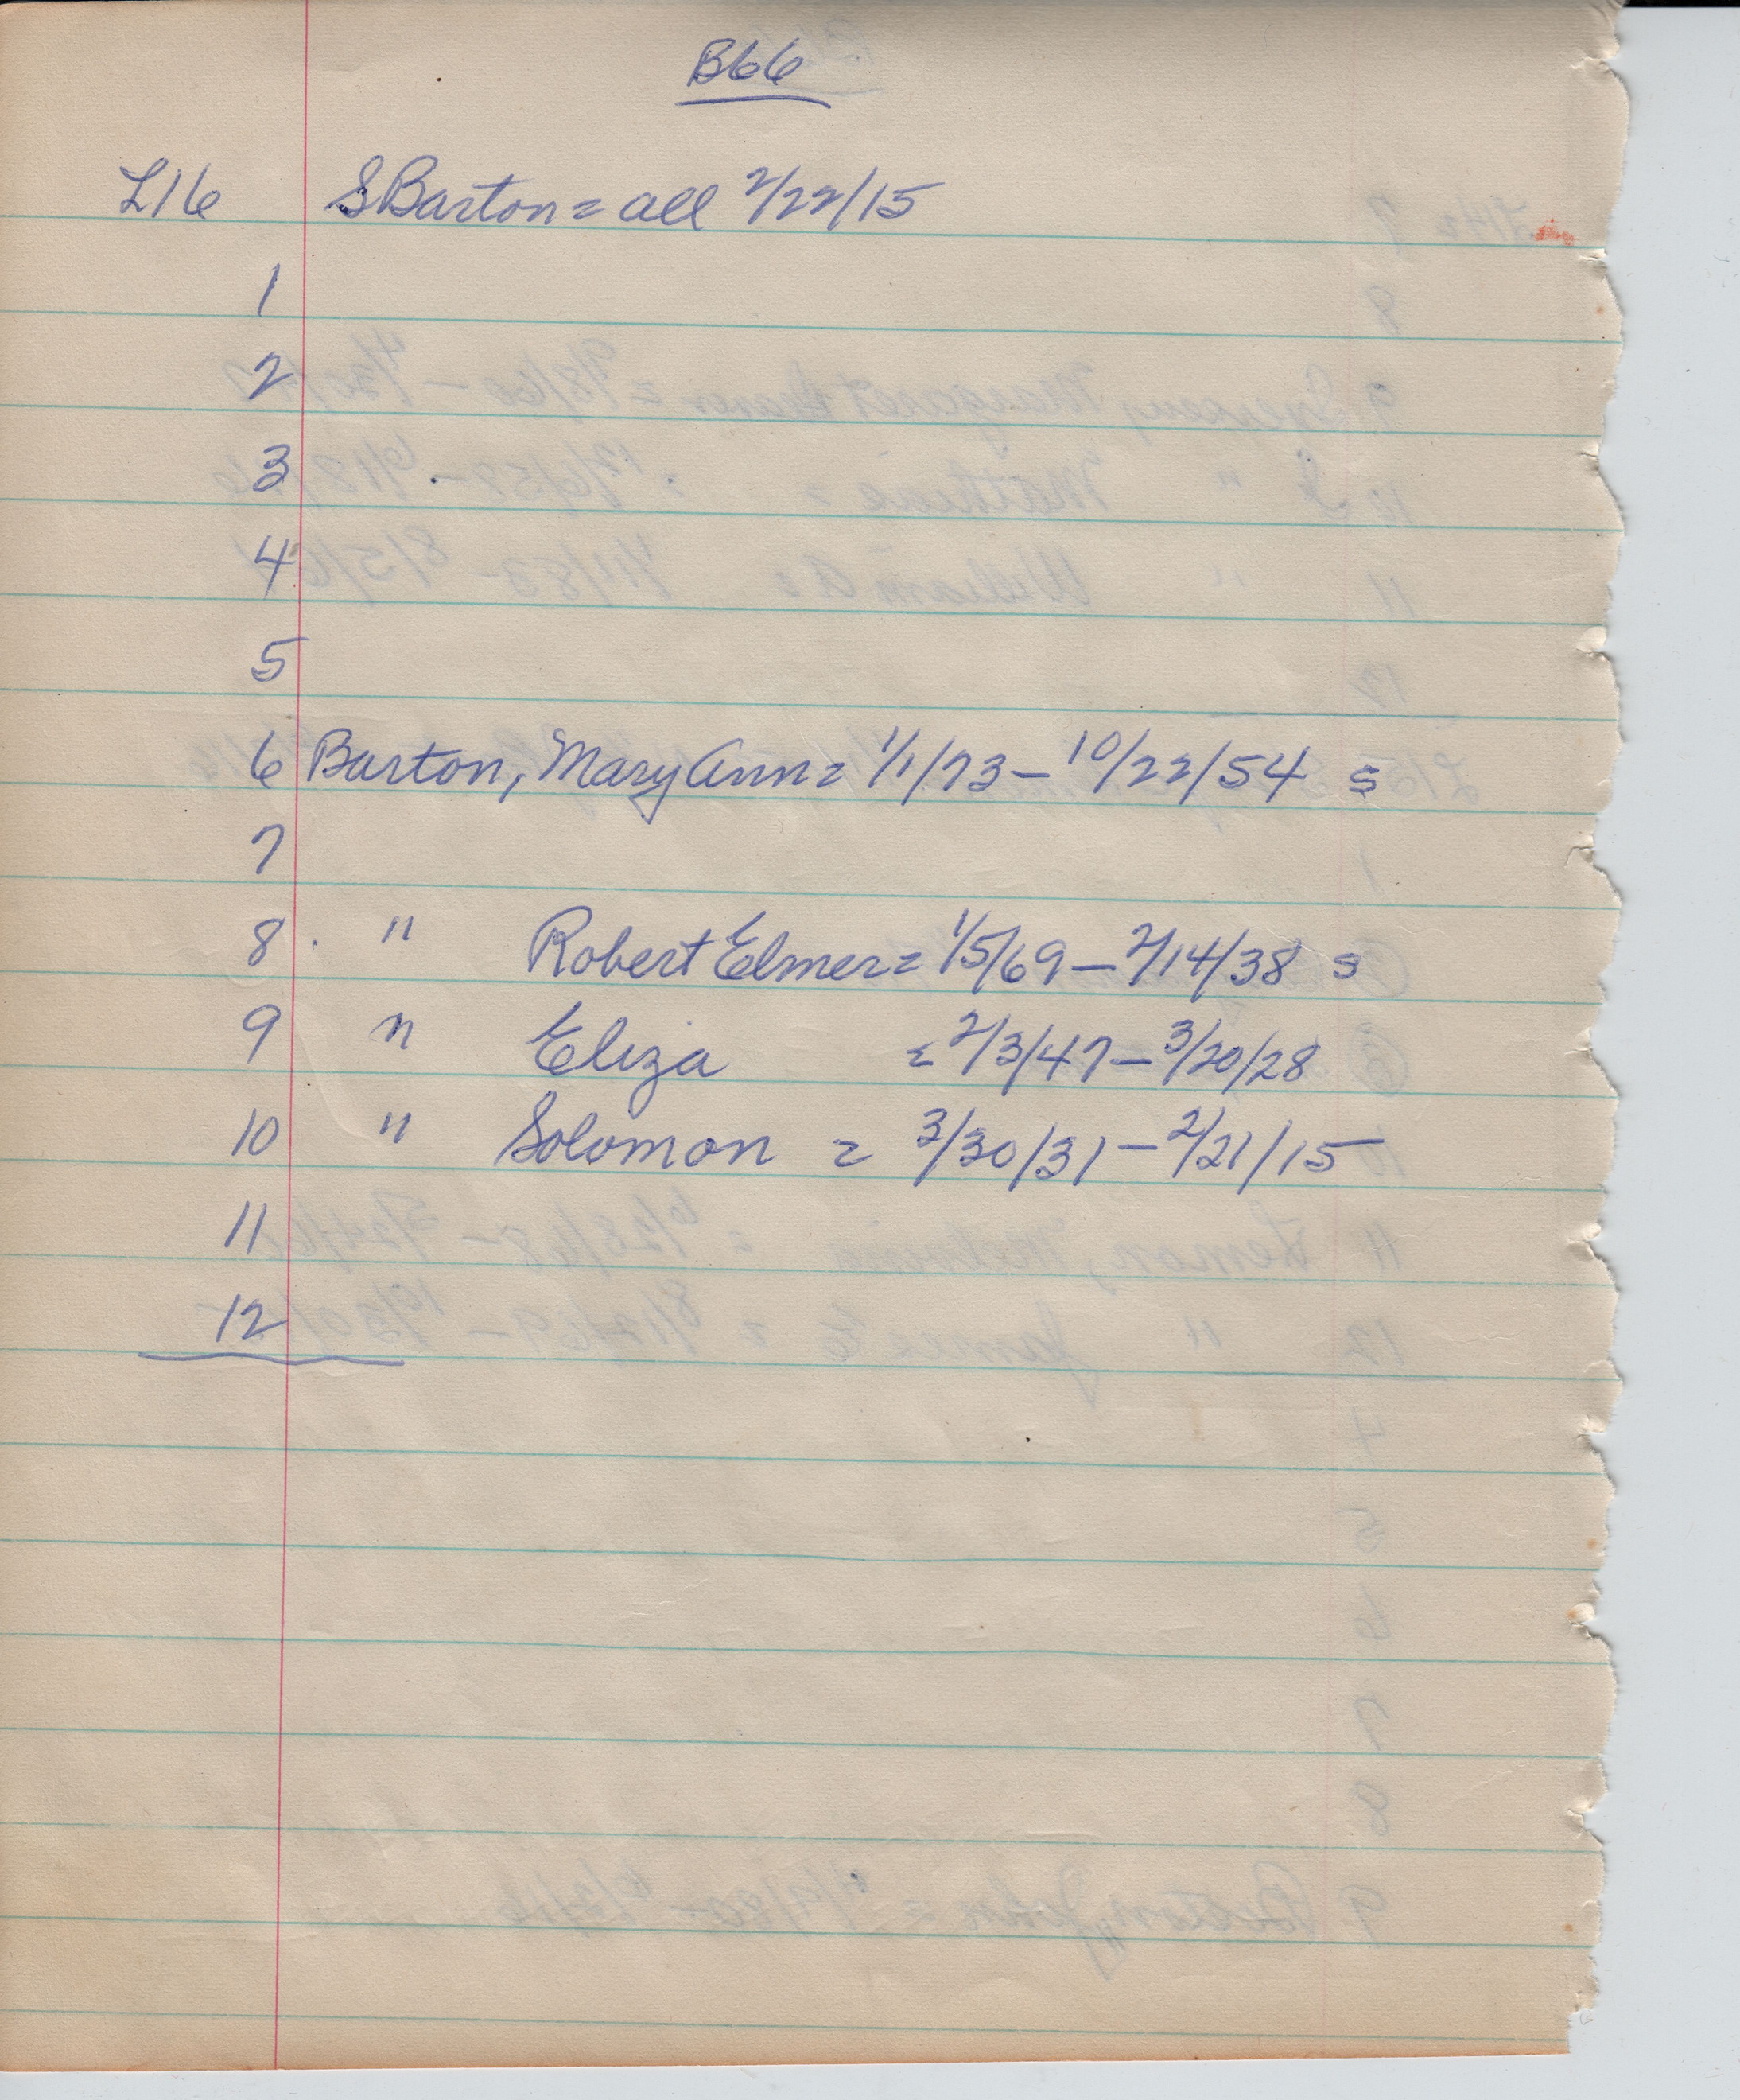 B66
L16 S Barton = all 2/22/15
1
2
3
4
5
6 Barton, Mary Ann = 1/1/73 – 10/22/54 s
7
8 " Robert Elmer = 1/5/69 – 2/14/38 s
9 " Eliza = 2/3/47 – 3/20/28
10 " Solomon = 3/30/31 – 2/21/15
11
12